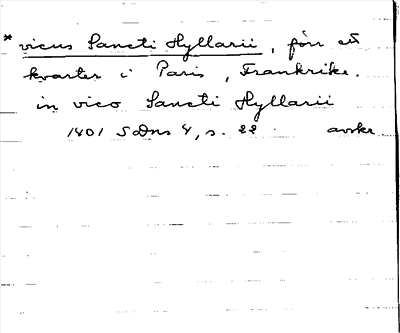 * vicus Sancti Hyllarii, förr ett
kvarter i Paris, Frankrike.
in vico Sancti Hyllarii
1401 SDns 4, s. 22 avskr.